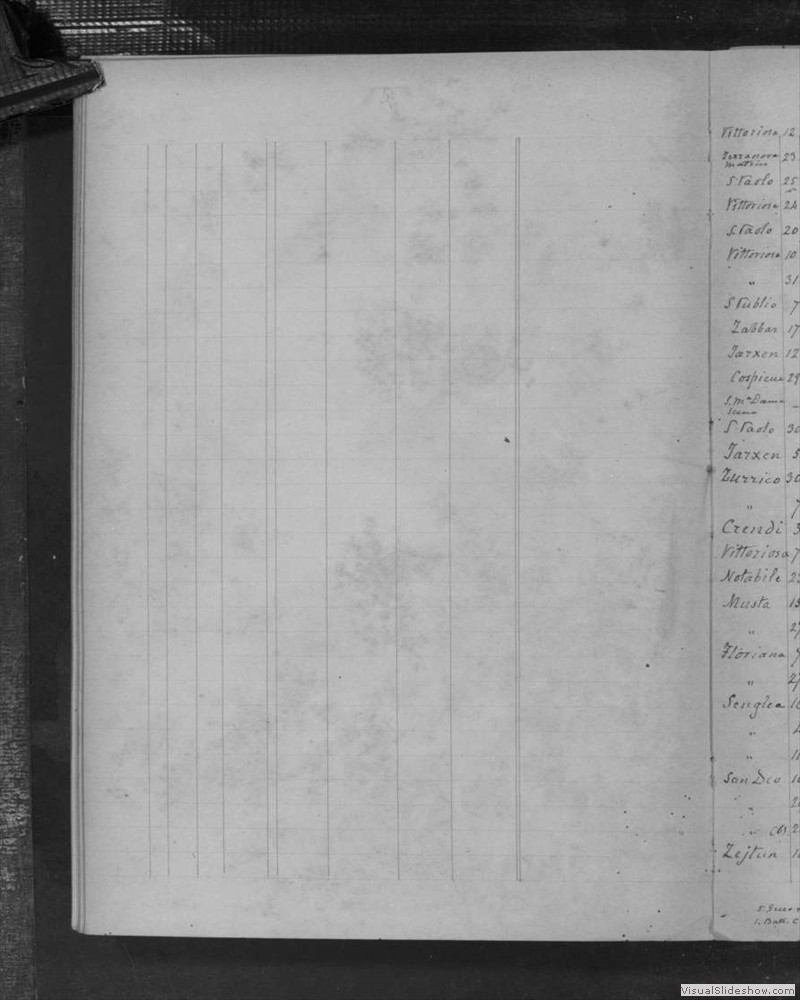 Vittoriosa 12
Terranova 23
Matrice
S. Paolo 25
Vittoriosa 24
S. Paolo 20
Vittoriosa 10
" 31
S. Publio 7
Zabbar 17
Tarxen 12
Cospicua 29
S. Paolo 30
Tarxen 5
Zurrico 30
" 7
Crendi 3
Vittoriosa 7
Notabile 2
Musta 15
" 27
Floriana 7
" 27
Senglea 10
"
" 11
San Dco 10
" 2
" 2
Zejtun 1
VisualSlideshow.com